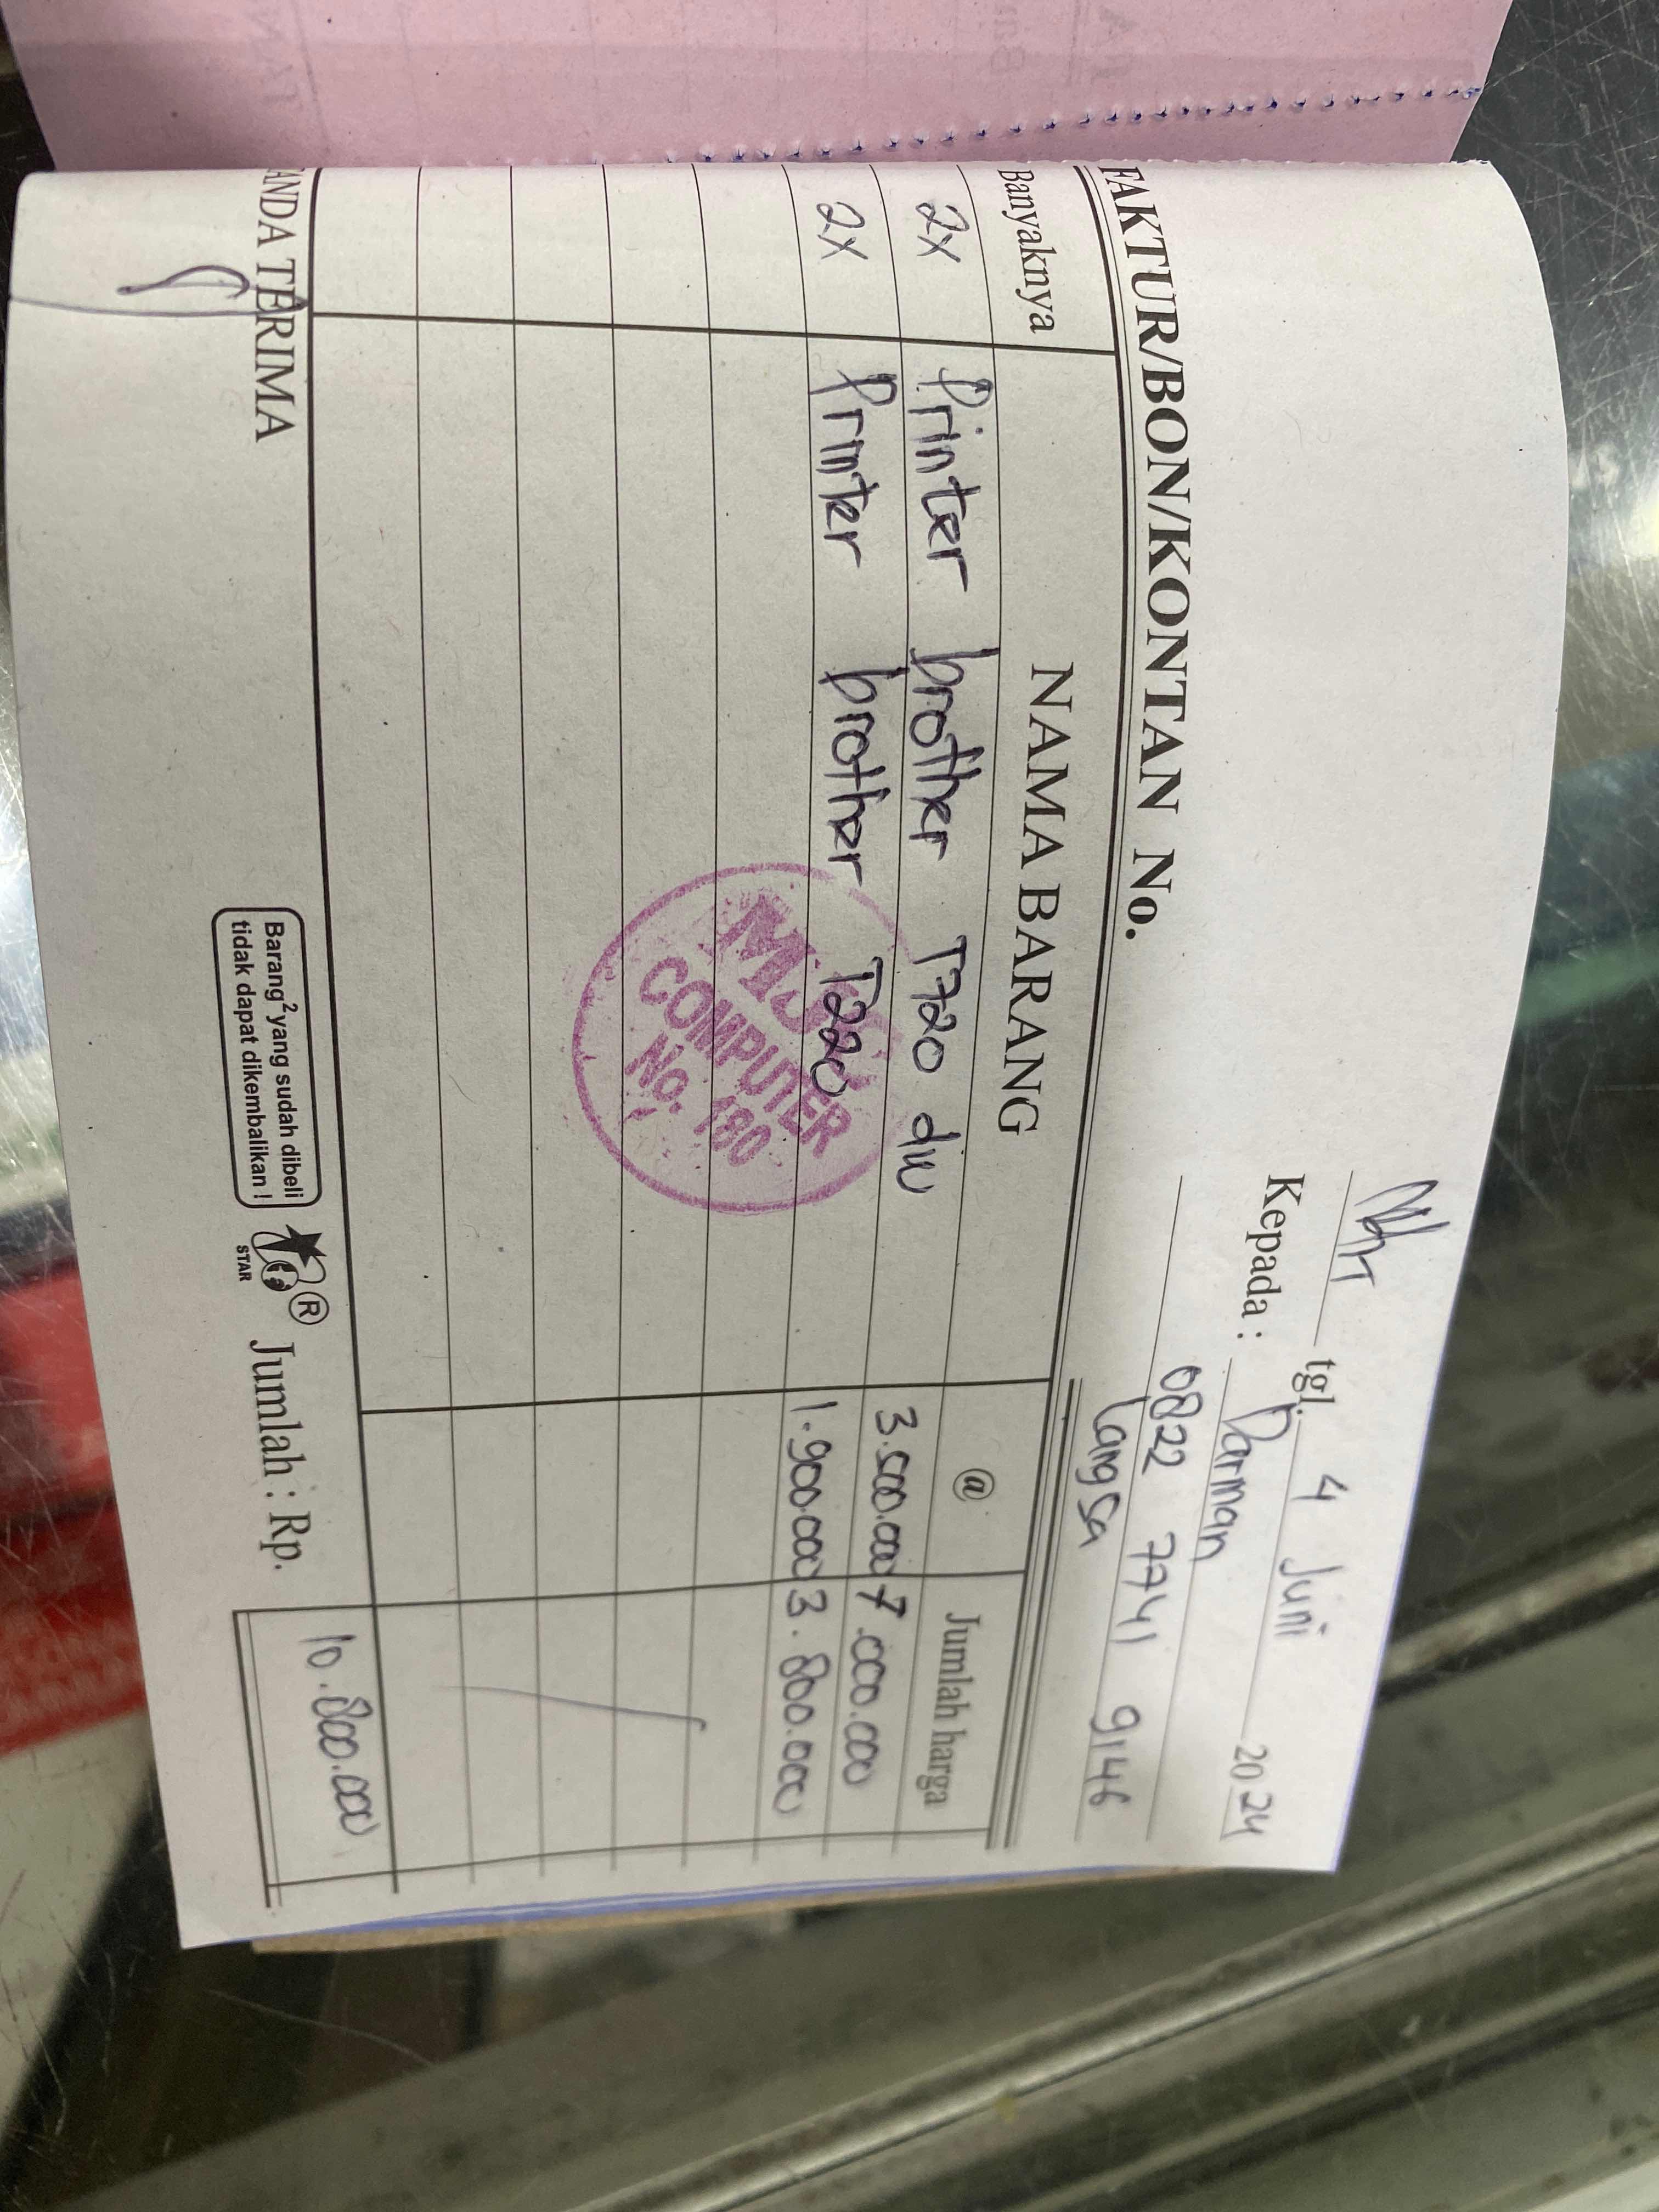 tgl. 4 Juni 2024
Kepada : Darman
0822 7741 9146
Langsa
FAKTUR/BON/KONTAN No.
Banyaknya NAMA BARANG @ Jumlah harga
2x Printer brother T720 dw 3.500.000 7.000.000
2x Printer brother T220 1.900.000 3.800.000
COMPUTER
No. 180
ANDA TERIMA
Barang² yang sudah dibeli
tidak dapat dikembalikan !
®
STAR
Jumlah : Rp. 10.800.000